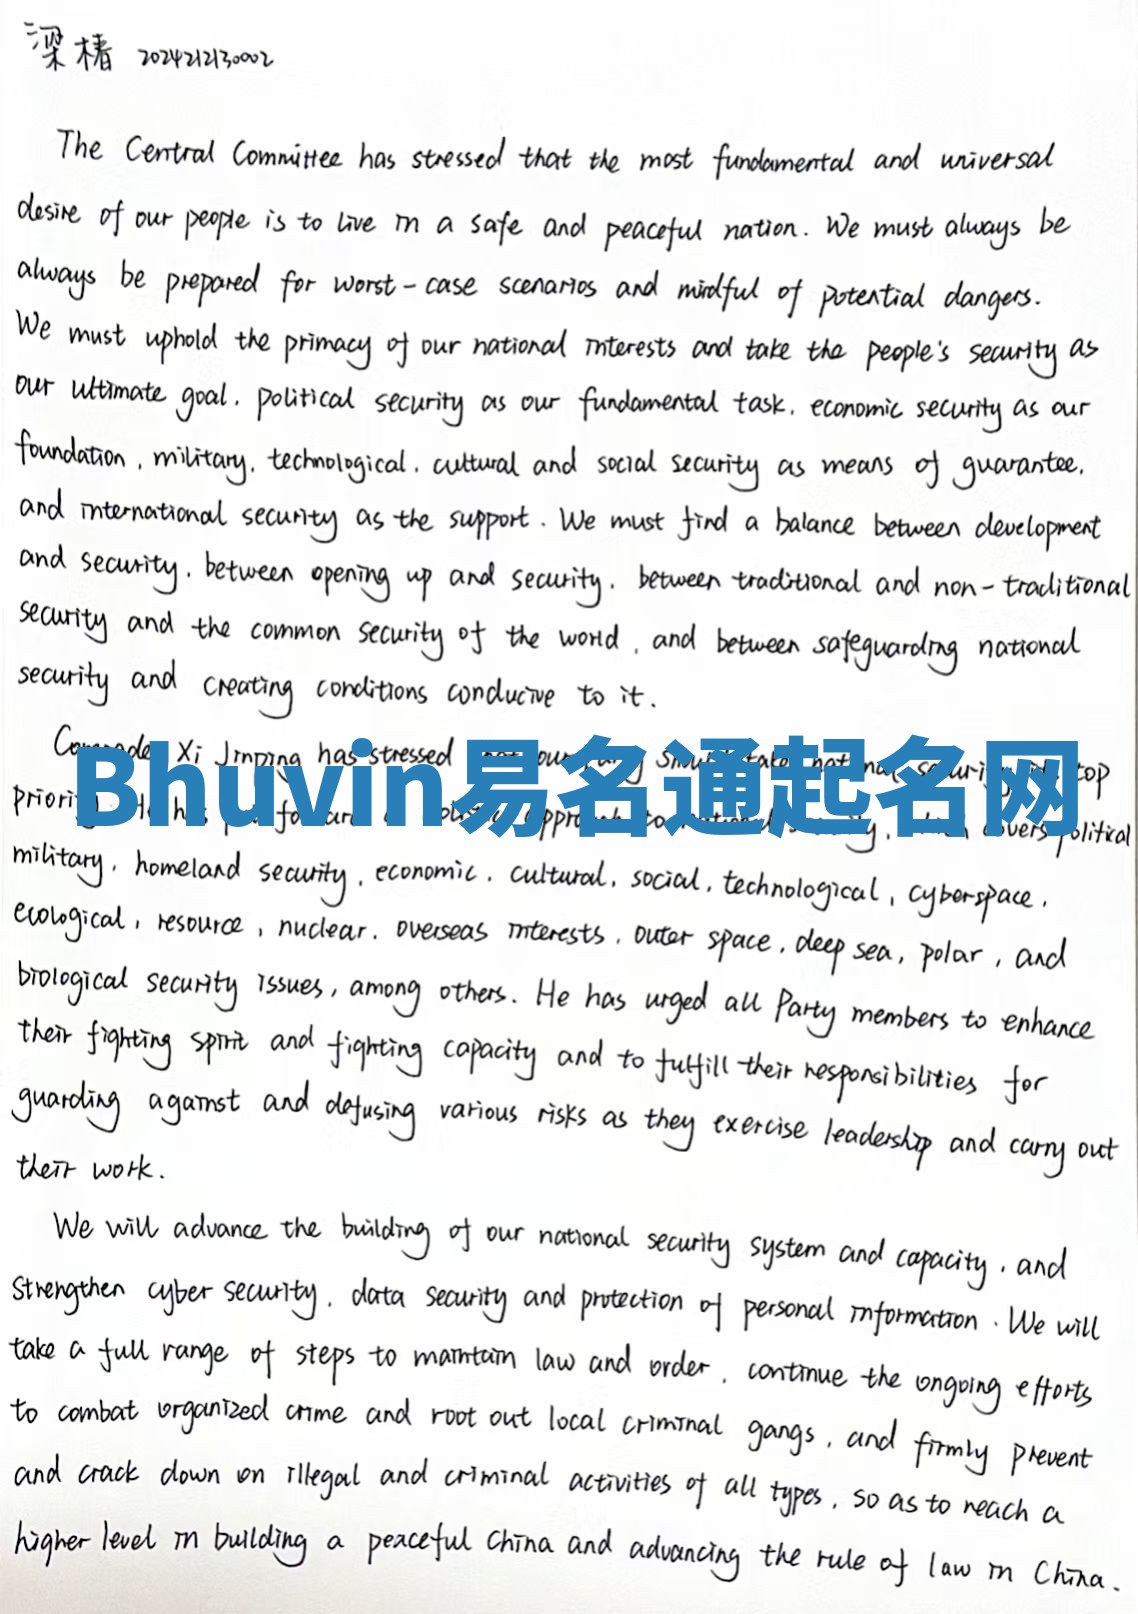 梁椿 2024212130002
The Central Committee has stressed that the most fundamental and universal
desire of our people is to live in a safe and peaceful nation. We must always be
always be prepared for worst-case scenarios and mindful of potential dangers.
We must uphold the primacy of our national interests and take the people's security as
our ultimate goal, political security as our fundamental task, economic security as our
foundation, military, technological, cultural and social security as means of guarantee,
and international security as the support. We must find a balance between development
and security, between opening up and security, between traditional and non-traditional
security and the common security of the world, and between safeguarding national
security and creating conditions conducive to it.
Xi Jinping has stressed our take top
Bhuvin易名通起名网
to covers political
military, homeland security, economic, cultural, social, technological, cyberspace,
ecological, resource, nuclear, overseas interests, outer space, deep sea, polar, and
biological security issues, among others. He has urged all Party members to enhance
their fighting spirit and fighting capacity and to fulfill their responsibilities for
guarding against and defusing various risks as they exercise leadership and carry out
their work.
We will advance the building of our national security system and capacity, and
strengthen cyber security, data security and protection of personal information. We will
take a full range of steps to maintain law and order, continue the ongoing efforts
to combat organized crime and root out local criminal gangs, and firmly prevent
and crack down on illegal and criminal activities of all types, so as to reach a
higher level in building a peaceful China and advancing the rule of law in China.